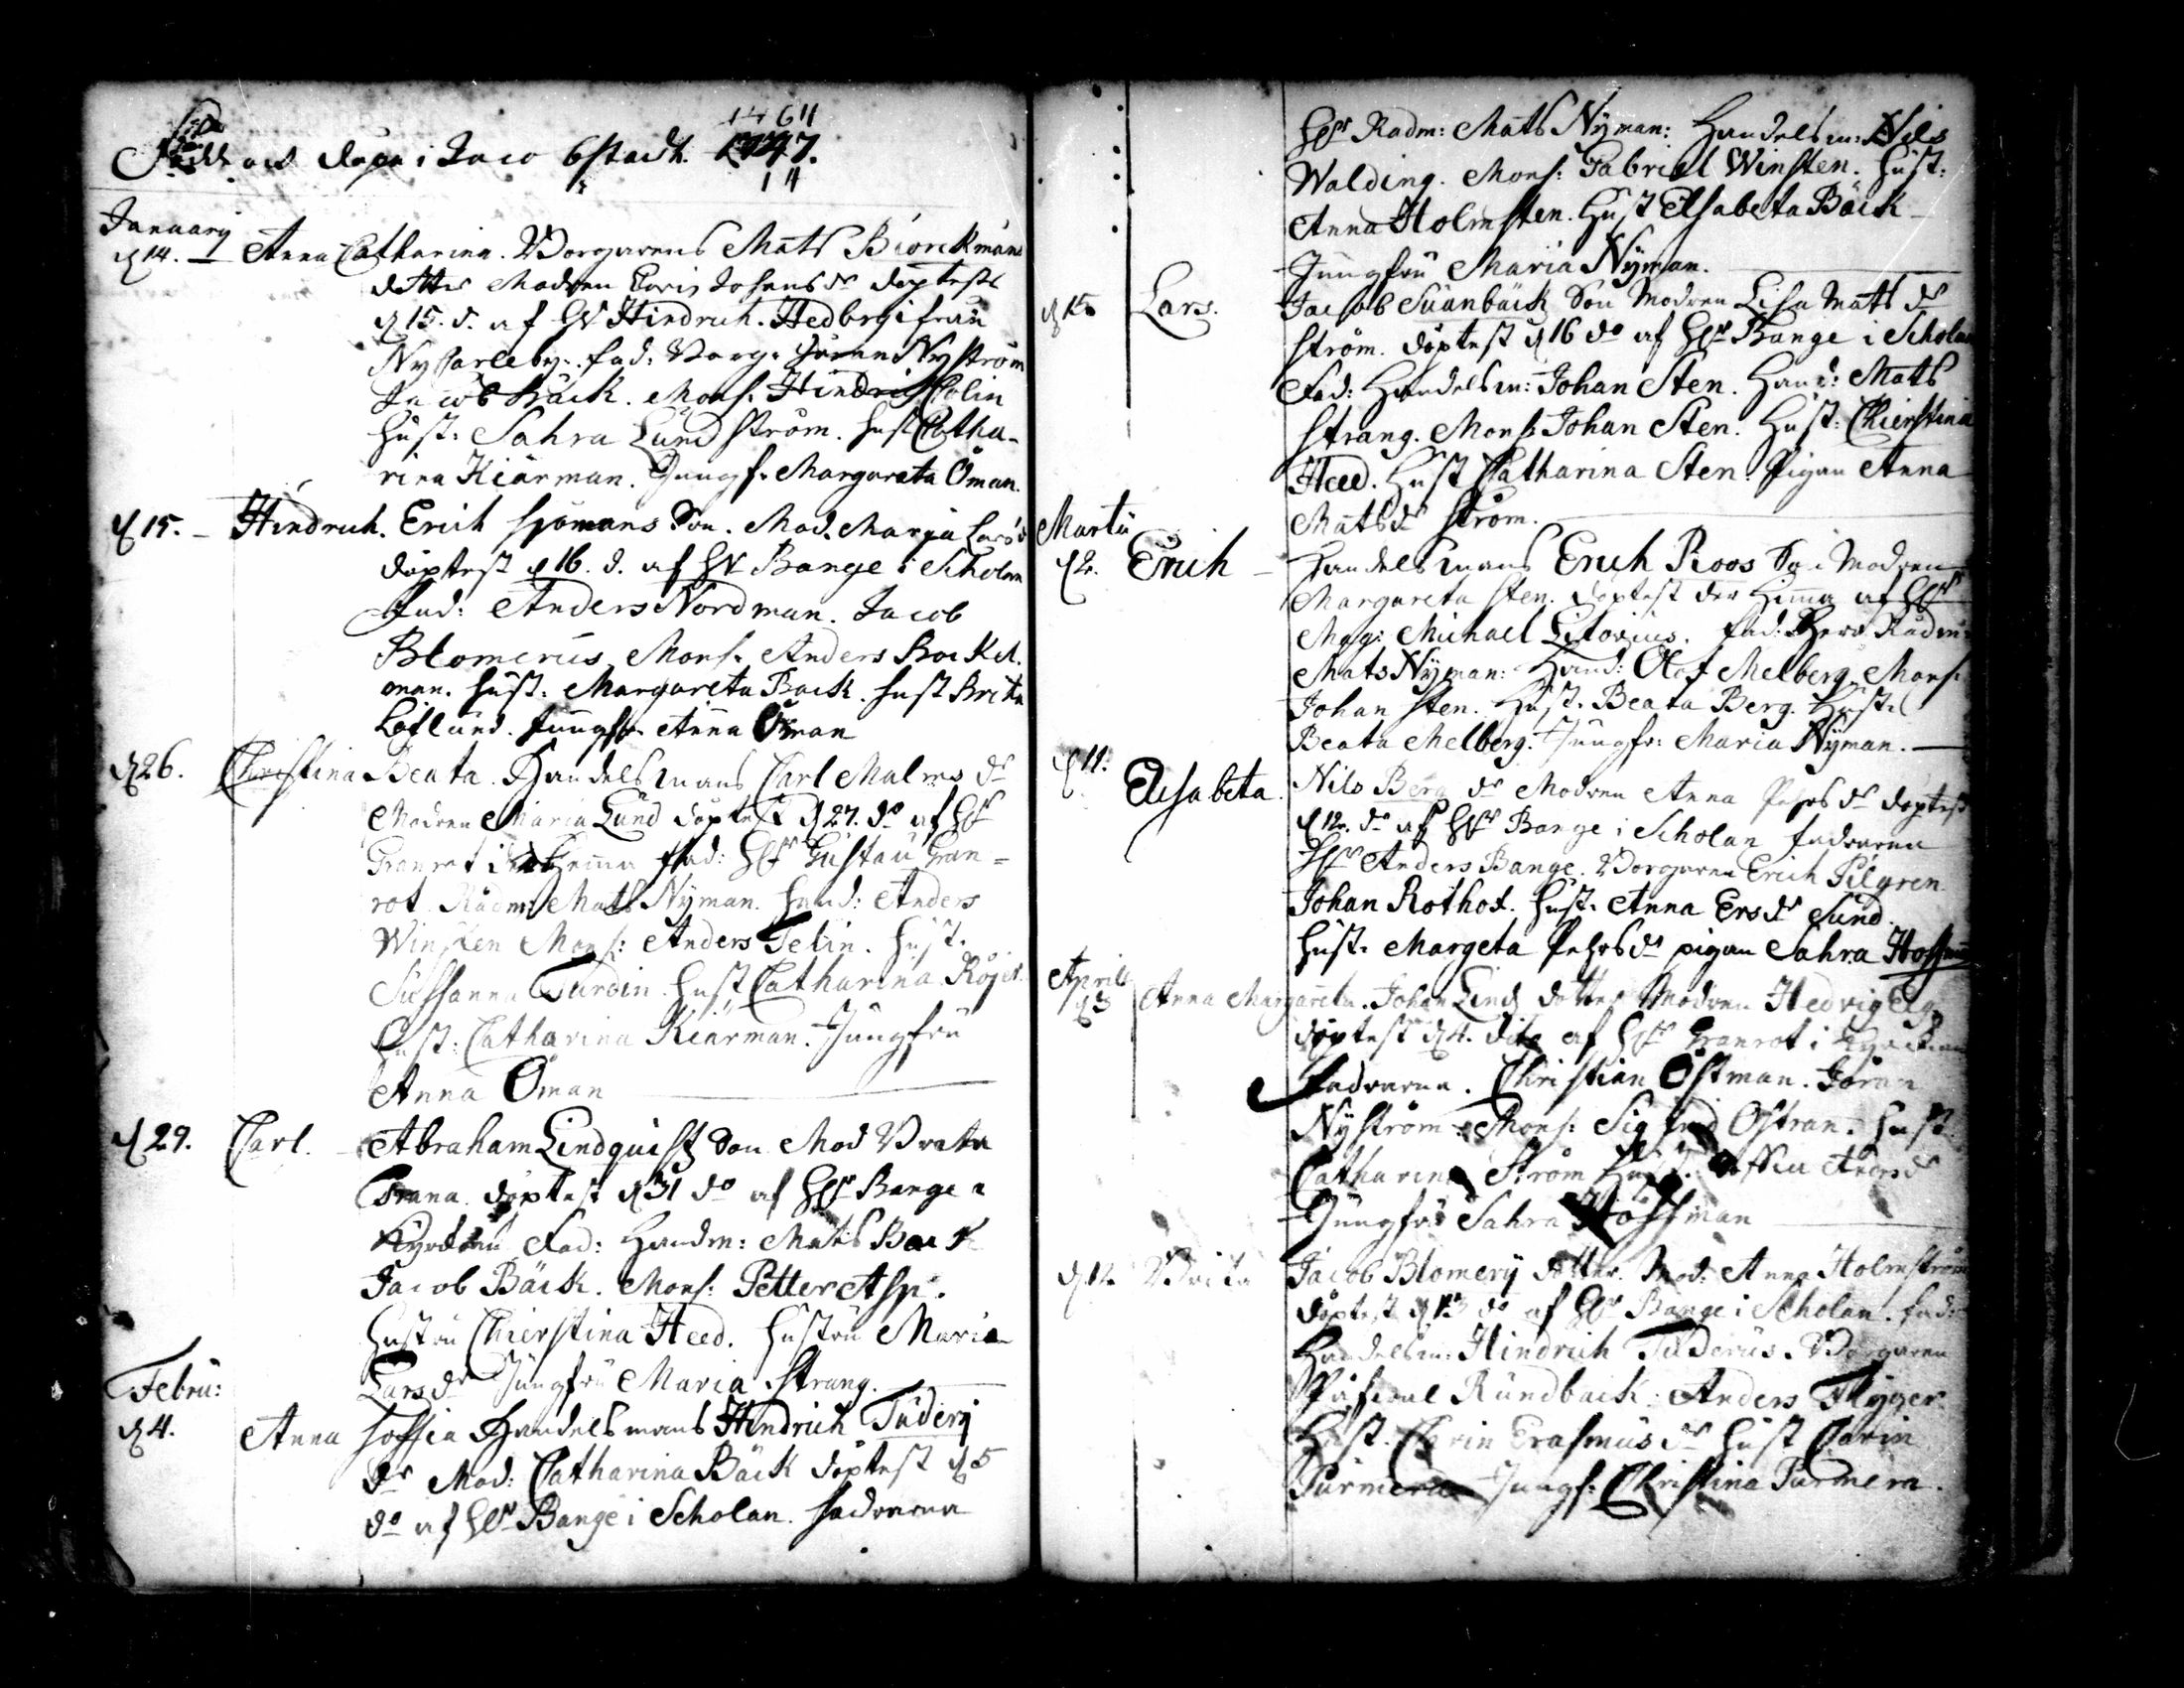 Födde och döpte i Jacobstadh. 1747.
January
d 14. Anna Catharina. Borgarens Mats Biörckmans
dotter Modren Carin Johans dr döptes
d 15. d. af Hr Hindrich Hedberg ifrån
Ny Carleby. fad: Borg. Jöran Nyström
Jacob Bäck. Mons. Hindrich Colin
Hust: Sahra Lundström. Hust Catha-
rina Kiärman. Jungf. Margareta Öman.
d 15. Hindrich. Erich Sjömans Son. Mod. Maria Lars d
döptest d 16. d. af Hr Bange i Scholan
Fad: Anders Nordman. Jacob
Blomerus Mons. Anders Backel
man. Hust. Margareta Bäck. Hust Brita
Löflund. Jungfr. Anna Öman
d 26. Christina Beata. Handelsmans Carl Malms dr
Modren Maria Lund döptest d 27. do af Hr
Granrot i Hemma fad: Hr Gustau Gran-
rot Rådm: Mats Nyman. Hand: Anders
Winsten Mons: Anders Telin. Hust.
Sussanna Turdin. Hust Catharina Röjer.
Hust: Catharina Kiärman. Jungfru
Anna Öman
d 29. Carl. Abraham Lindquist Son Mod Brita
Grana. döptest d 31 do af Hr Bange i
Kyrckan Fad: Handm: Mats Bäck
Jacob Bäck. Mons: Petter Asp.
Hustru Chierstina Heed. Hustru Maria
Lars dr Jungfru Maria Strang.
Febru:
d 4. Anna Soffia Handelsmans Hindrich Tuderj
dr Mod: Catharina Bäck döptest d 5
do af Hr Bange i Scholan. fadrarna
Hr Radm: Mats Nyman: Handelsm: Nils
Walding. Mons: Gabriel Winsten. Hust:
Anna Holmsten. Hust Elsabeta Bäck
Jungfru Maria Nyman.
d 15 Lars. Jacob Suanbäck Son Modren Lisa Mats dr
Ström. döptest d 16 do af Hr Bange i Scholan
Fad: Handelsm: Johan Sten. Hand: Mats
Strang. Mons Johan Sten. Hust: Chierstina
Heed. Hust Catharina Sten. Pigan Anna
Mats dr Ström.
Martii
d 2. Erich Handelsmans Erich Roos Son Modren
Margareta Sten. döptest der Hemma af Hr
Mag: Michael Litovius. fad: Herr Rådm:
Mats Nyman: Hand: Olof Melberg Mons.
Johan Sten. Hust. Beata Berg. Hust.
Beata Melberg. Jungfr: Maria Nyman.
d 11. Elisabeta. Nils Berg dr Modren Anna Pehrs dr döptest
d 12. do af Hr Bange i Scholan fadrarna
Hr Anders Bange. Borgaren Erich Pilgren
Johan Rothof. Hust. Anna Ers dr Sund.
Hust. Margeta Pehrs dr pigan Sahra Hoffman
Aprill
d 3 Anna Margareta. Johan Lind dotter Modren Hedvig Elg
döptest d 4. dito af Hr Granrot i Kyrckan
Fadrarna. Christian Östman. Jöran
Nyström. Mons: Sigfrid Östman. Hust.
Catharina Ström Hust. Soffia Anders dr
Jungfru Sahra Hoffman
d 12 Brita Jacob Blomerj dotter. Mod: Anna Holmström
döptest d 13 do af Hr Bange i Scholan. fad:
Handelsm: Hindrich Tuderus. Borgaren
Påhwal Rundback. Anders Flyger
Hust. Carin Erasmus dr Hust Carin
Purmera Jungf: Christina Purmera.